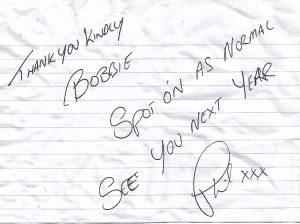 THANK YOU KINDLY
BOBBIE
SPOT ON AS NORMAL
SEE YOU NEXT YEAR
Phil xxx